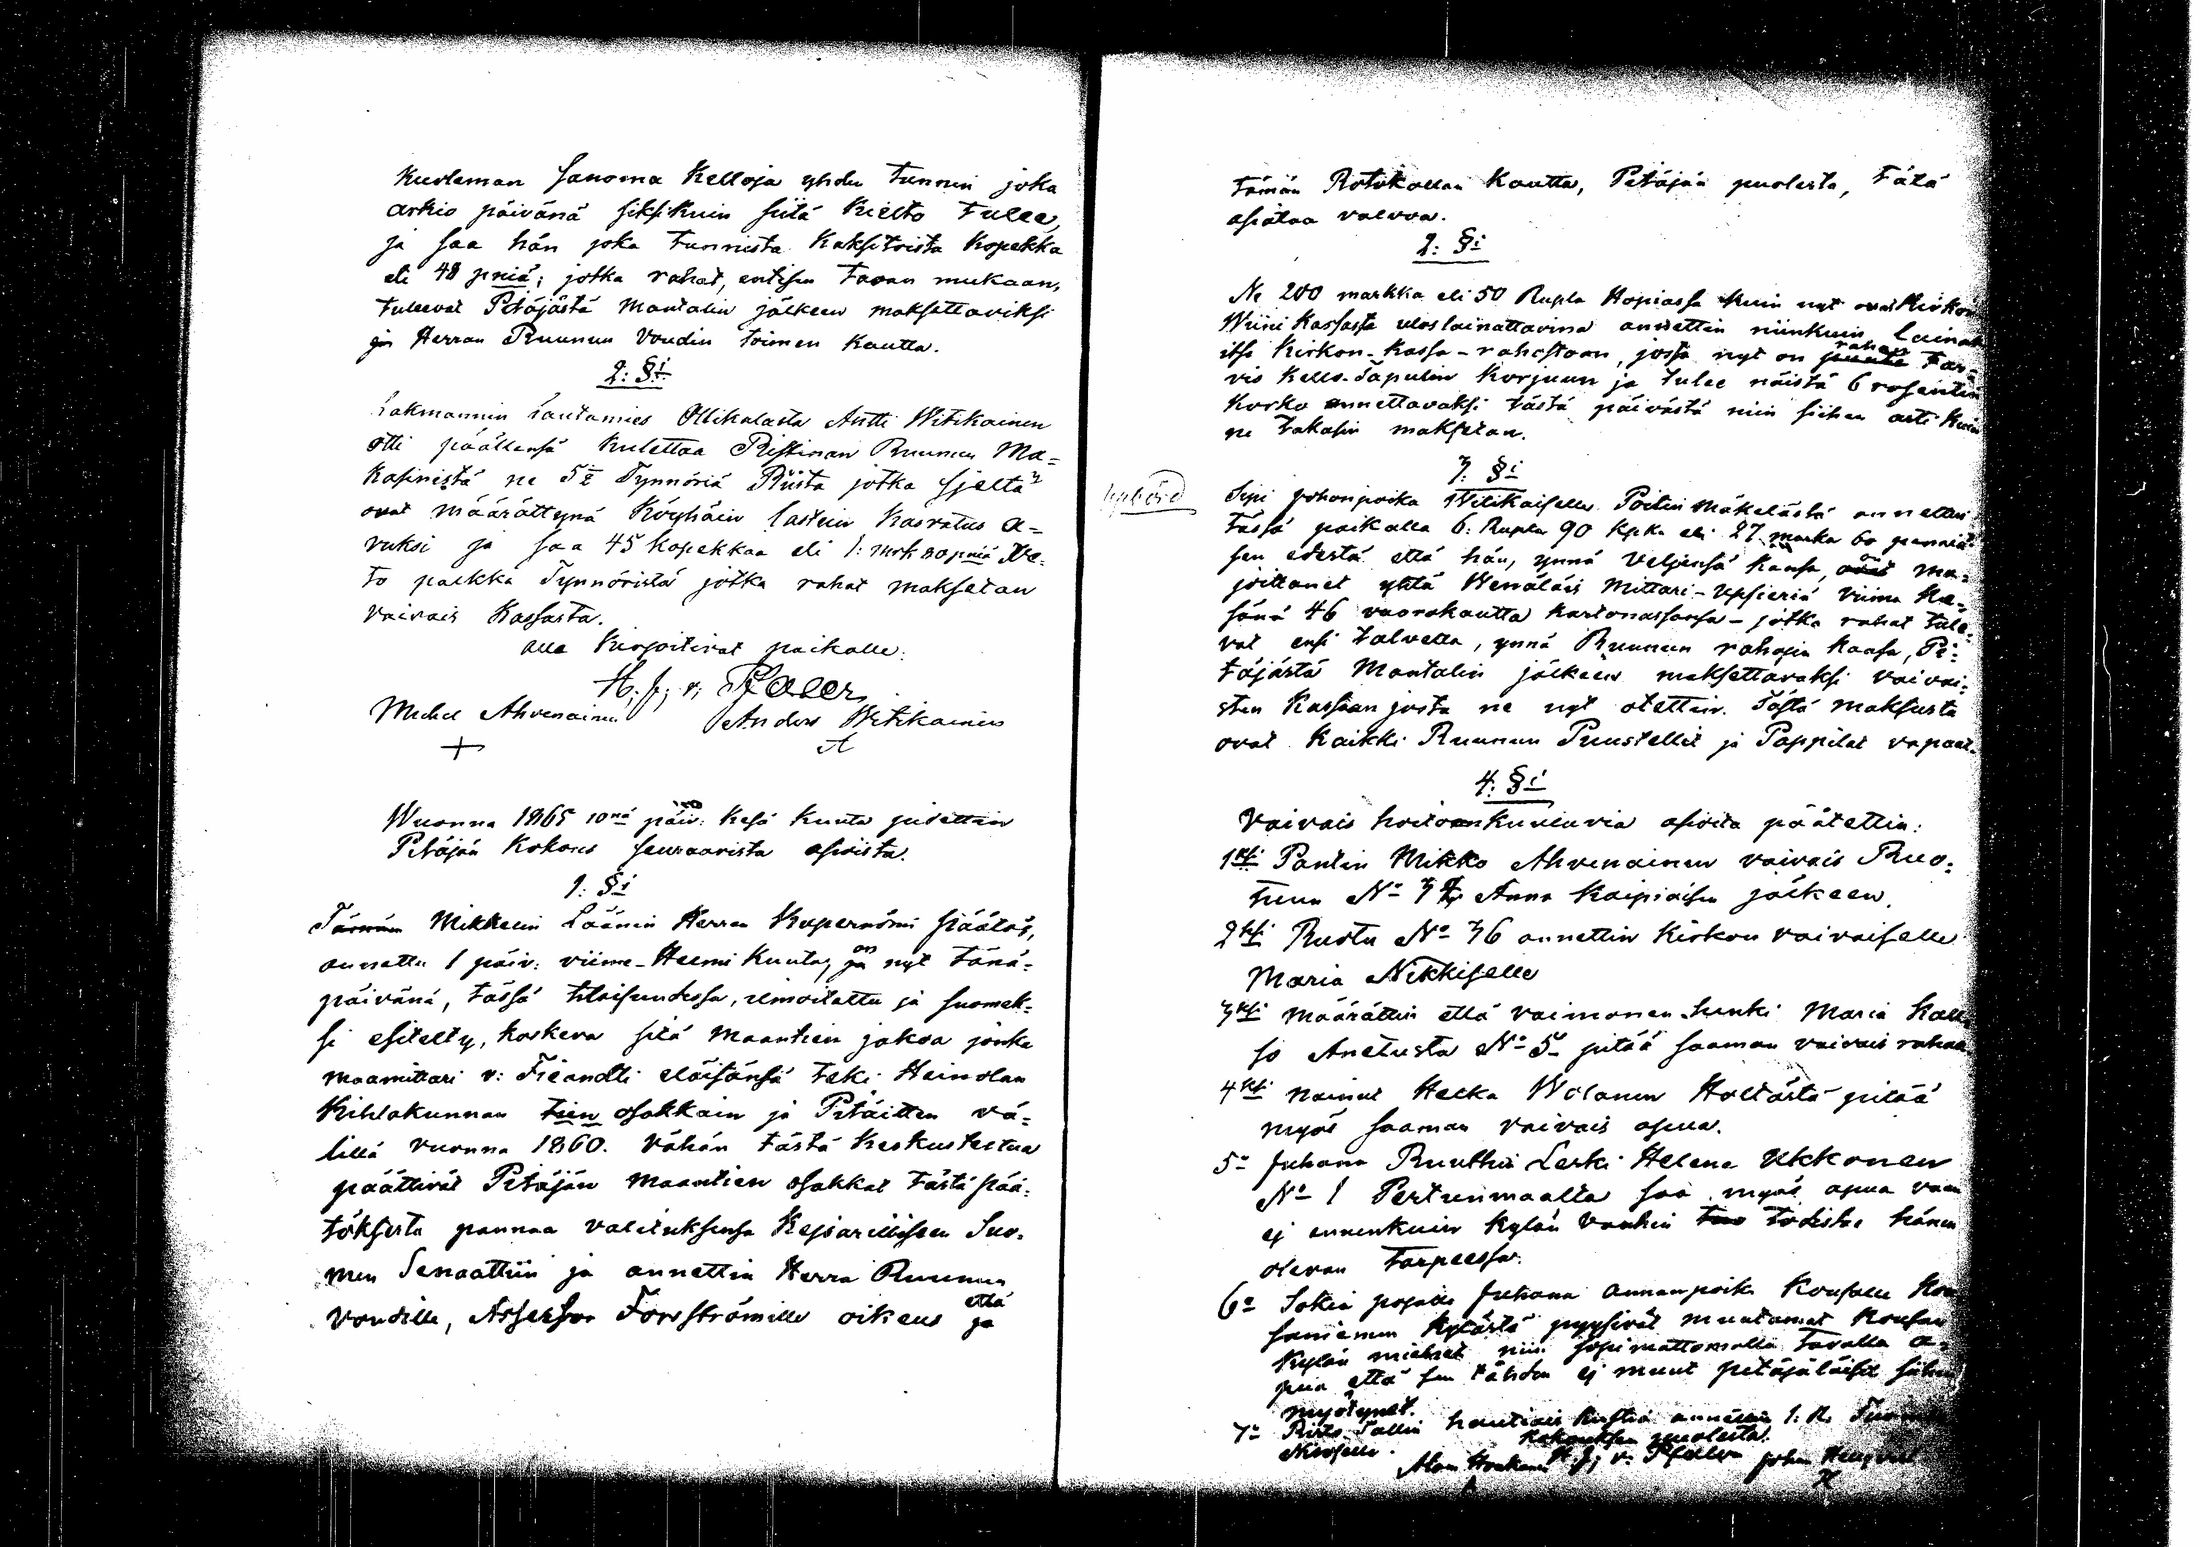 Kuoleman Sanoma Kelloja yhden tunnin joka
arkio päivänä siksikuin siitä Kielto tulee,
ja saa hän joka tunnista Kaksitoista Kopekka
eli 48 pniä; jotka rahat, entisen tavan mukaan,
tulevat Pitäjästä Mantalin jälkeen maksettaviksi
ja Herran Ruunun Voudin toimen Kautta.
2: §i
Lakmannin Lautamies Ollikalasta Antti Witikainen
otti päällensä Kulettaa Ristinan Ruunun Ma=
kasinista ne 5 1/2 Tynnöriä Riista jotka sieltä
ovat määrättynä Köyhäin lastein Kasvatus a=
vuksi ja saa 45 Kopekkaa eli 1: mrk 80 pniä Ve=
to palkka Tynnöristä jotka rahat maksetan
vaivais Kassasta.
alle Kirjoitivat paikalle:
H. J; v; Pfaler,
Michel Ahvenainen Anders Witikainen
+ A
Wuonna 1865 10nä päiv: Kesä Kuuta pidettiin
Pitäjän Kokous seuraavista asioista.
1: §i
Tämän Mikkelin Läänin Herran Kupernöörin päätös,
annettu 1 päiv: viime-Helmi Kuuta, ja on nyt tänä=
päivänä, tässä tilaisuudessa, ilmoitettu ja suomek=
si esitelty, koskeva sitä maantien jakoa jonka
maamittari v: Fieandti eläisänsä teki Heinolan
Kihlakunnan tien osakkain ja Pitäitten vä=
lillä vuonna 1860. Vähän tästä Keskusteltua
päättivät Pitäjän maantien osakkat tästä pää=
töksestä pannaa valituksensa Keisarilliseen Suo=
men Senaattiin ja annettin Herra Ruunun
voudille, Assessor Forsströmille oikeus että ja
tämän Rotokollan Kautta, Pitäjän puolesta, tätä
asiataa valvoa.
2: §i
Ne 200 markka eli 50 Rupla Hopiassa kuin nyt ovat Kirkon
Wiini Kassasta uloslainattavina annettin niinkuin lainat
itse Kirkon-Kassa-rahastoon, jossa nyt on puute rahan tar=
vis Kello-Tapulin Korjuun ja tulee näistä 6 rosentin
Korko annettavaksi tästä päivästä niin siihen asti Kuin
ne takasin maksetan.
3: §i
Johonpoika Witikaiselle Poitin Mäkelästä annettin
tässä paikalla 6: Rupla 90 Kpka eli 27 marka 60 penniä
sen edestä että hän, ynnä Veljensä kansa, ovat ma=
joittanet yhtä Wenäläis Mittari-Upsieriä viime Ke=
sänä 46 vuorokautta Kartonassansa - jotka rahat tule=
vat ensi talvella, ynnä Ruunun rahain Kansa, Pi=
täjästä Mantalin jälkeen maksettavaksi vaivai=
sten Kassaan josta ne nyt otettiin. Tästä maksusta
ovat Kaikki Ruunun Puustellit ja Pappilat vapaat.
4: §i
Vaivais hoitoonkuuluvia asioita päätettin:
1ksi Pantin Mikko Ahvenainen vaivais Ruo=
tuun No 37 Anna Kaipiaisen jälkeen.
2ksi Ruotu No 36 annettin Kirkon vaivaiselle
Maria Nikkiselle
3ksi Määrättin että vaimonen henki Maria Kall
so Anetusta No 5 pitää saaman vaivais rahaa
4ksi nainut Helka Wolanen Holtästä pitää
myös saaman vaivais apua.
5o Juhana Ruuthin Leski Helena Ukkonen
No 1 Pertunmaalta saa myös apua vaan
ej ennenkuin Kylän vanhin tuo todistee hänen
olevan tarpeessa.
6o Sokia pojalle Juhana Annanpoika Kousalle
saniemen Kylästä pyysivät muutamat Kousan
Kylän miehet niin sopimattomalla tavalla a=
pua että sen tähden ej muut pitäjäläiset siihen
myötynet.
7o Risto Tallin hautiais annettin 1: R.
Kokouksen puolesta.
H. J; v. Pfaler Johan